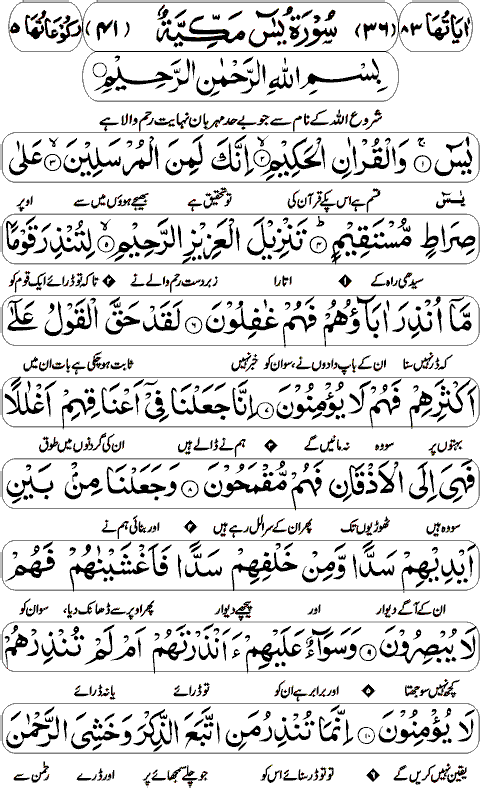 اٰيَاتُهَا ٨٣ (٣٦) سُوْرَةُ يٰسٓ مَكِّيَّةٌ (٤١) رُكُوْعَاتُهَا ٥
بِسْمِ اللهِ الرَّحْمٰنِ الرَّحِيْمِ
شروع اللہ کے نام سے جو بے حد مہربان نہایت رحم والا ہے
يٰسٓ ۚ﴿١﴾ وَالْقُرْاٰنِ الْحَكِيْمِ ۙ﴿٢﴾ اِنَّكَ لَمِنَ الْمُرْسَلِيْنَ ۙ﴿٣﴾ عَلٰى
یٰسٓ قسم ہے اس پکے قرآن کی تو تحقیق ہے بھیجے ہوؤں میں سے اوپر
صِرَاطٍ مُّسْتَقِيْمٍ ؕ﴿٤﴾ تَنْزِيْلَ الْعَزِيْزِ الرَّحِيْمِ ۙ﴿٥﴾ لِتُنْذِرَ قَوْمًا
سیدھی راہ کے ۱ اتارا زبردست رحم والے نے ۲ تاکہ تو ڈرائے ایک قوم کو
مَّآ اُنْذِرَ اٰبَآؤُهُمْ فَهُمْ غٰفِلُوْنَ ﴿٦﴾ لَقَدْ حَقَّ الْقَوْلُ عَلٰٓى
کہ ڈر نہیں سنا ان کے باپ دادوں نے، سو ان کو خبر نہیں ثابت ہو چکی ہے بات ان میں
اَكْثَرِهِمْ فَهُمْ لَا يُؤْمِنُوْنَ ﴿٧﴾ اِنَّا جَعَلْنَا فِيْٓ اَعْنَاقِهِمْ اَغْلٰلًا
بہتوں پر سو وہ نہ مانیں گے ہم نے ڈالے ہیں ان کی گردنوں میں طوق
فَهِيَ اِلَى الْاَذْقَانِ فَهُمْ مُّقْمَحُوْنَ ﴿٨﴾ وَجَعَلْنَا مِنْۢ بَيْنِ
سو وہ ہیں ٹھوڑیوں تک پھر ان کے سر الل رہے ہیں اور بنائی ہم نے
اَيْدِيْهِمْ سَدًّا وَّمِنْ خَلْفِهِمْ سَدًّا فَاَغْشَيْنٰهُمْ فَهُمْ
ان کے آگے دیوار اور پیچھے دیوار پھر اوپر سے ڈھانک دیا، سو ان کو
لَا يُبْصِرُوْنَ ﴿٩﴾ وَسَوَآءٌ عَلَيْهِمْ ءَاَنْذَرْتَهُمْ اَمْ لَمْ تُنْذِرْهُمْ
کچھ نہیں سوجھتا اور برابر ہے ان کو تو ڈرائے یا نہ ڈرائے
لَا يُؤْمِنُوْنَ ﴿١٠﴾ اِنَّمَا تُنْذِرُ مَنِ اتَّبَعَ الذِّكْرَ وَخَشِيَ الرَّحْمٰنَ
یقین نہیں کریں گے تو تو ڈر سنائے اس کو جو چلے سمجھائے پر اور ڈرے رحمٰن سے